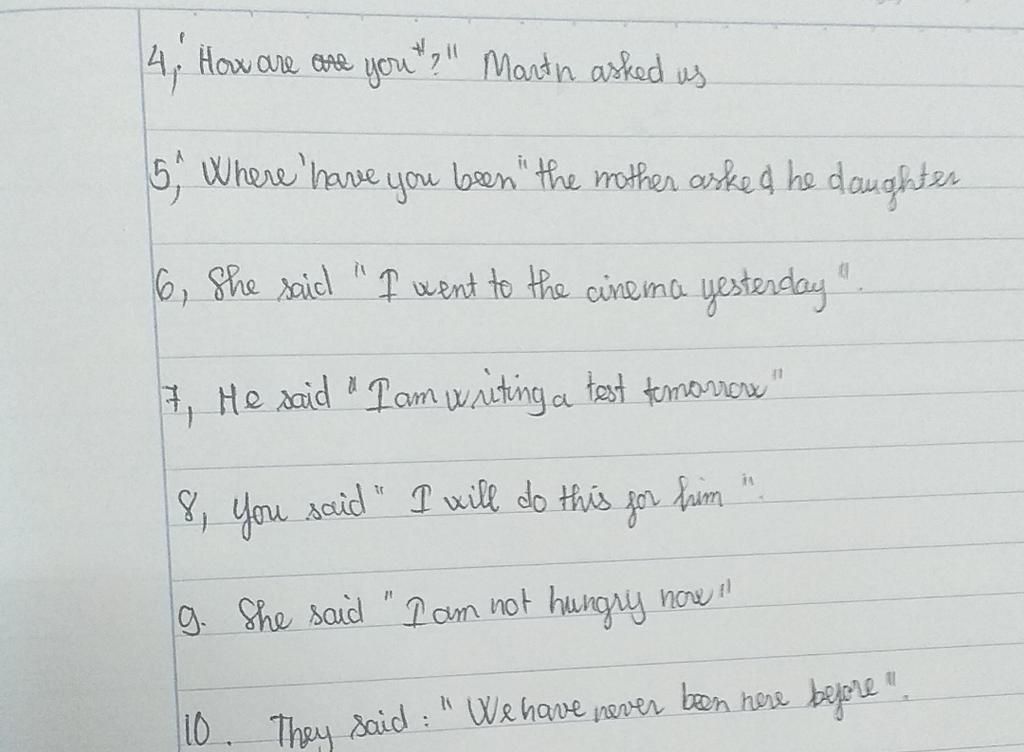 4, "How are are you"?" Martn asked us
5, "Where have you been" the mother asked he daughter
6, She said "I went to the cinema yesterday".
7, He said "I am writing a test tomorrow"
8, You said "I will do this for him".
9. She said "I am not hungry now"
10. They said: "We have never been here before".